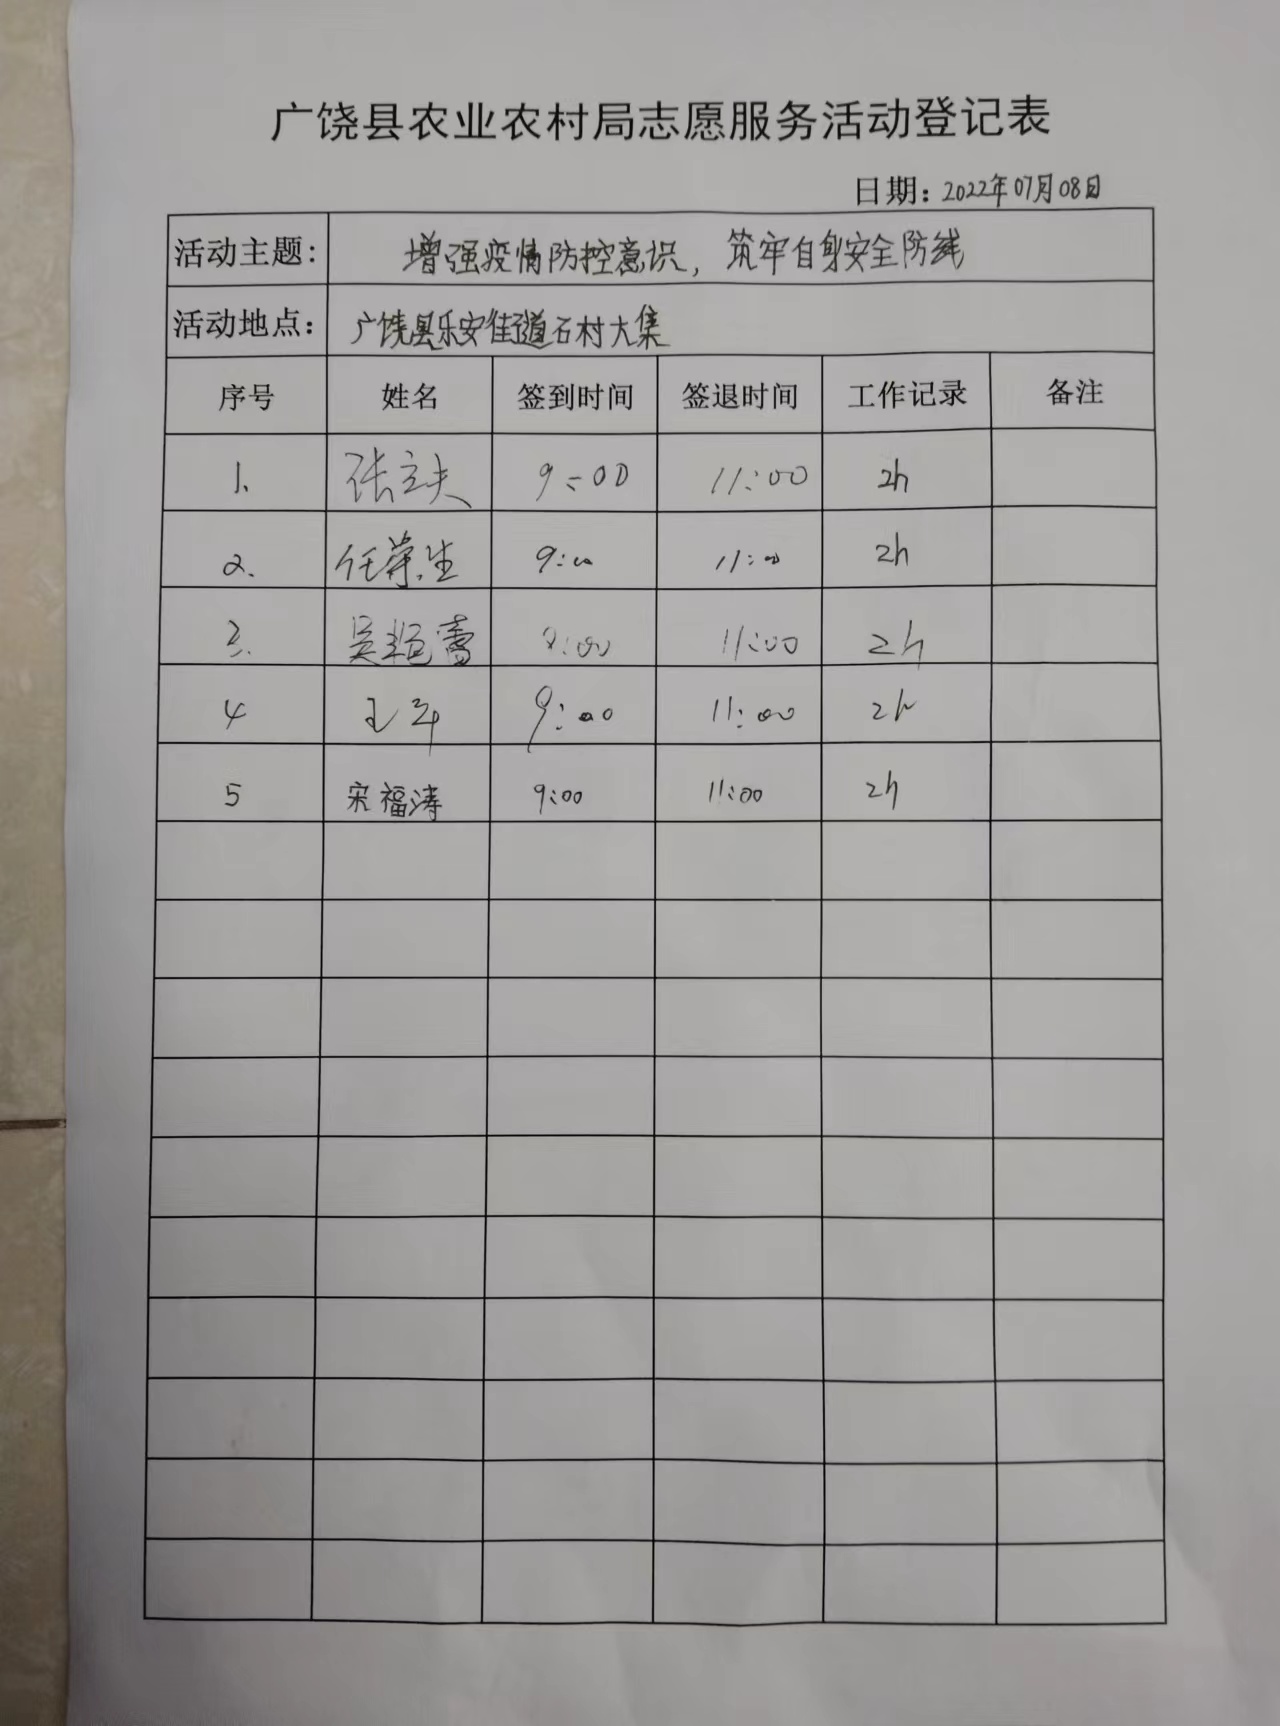 广饶县农业农村局志愿服务活动登记表
日期：2022年07月08日
活动主题： 增强疫情防控意识，筑牢自身安全防线
活动地点： 广饶县乐安街道石村大集
序号 姓名 签到时间 签退时间 工作记录 备注
1. 张立夫 9:00 11:00 2h
2. 任荣生 9:00 11:00 2h
3. 吴 9:00 11:00 2h
4 王军 9:00 11:00 2h
5 宋福涛 9:00 11:00 2h